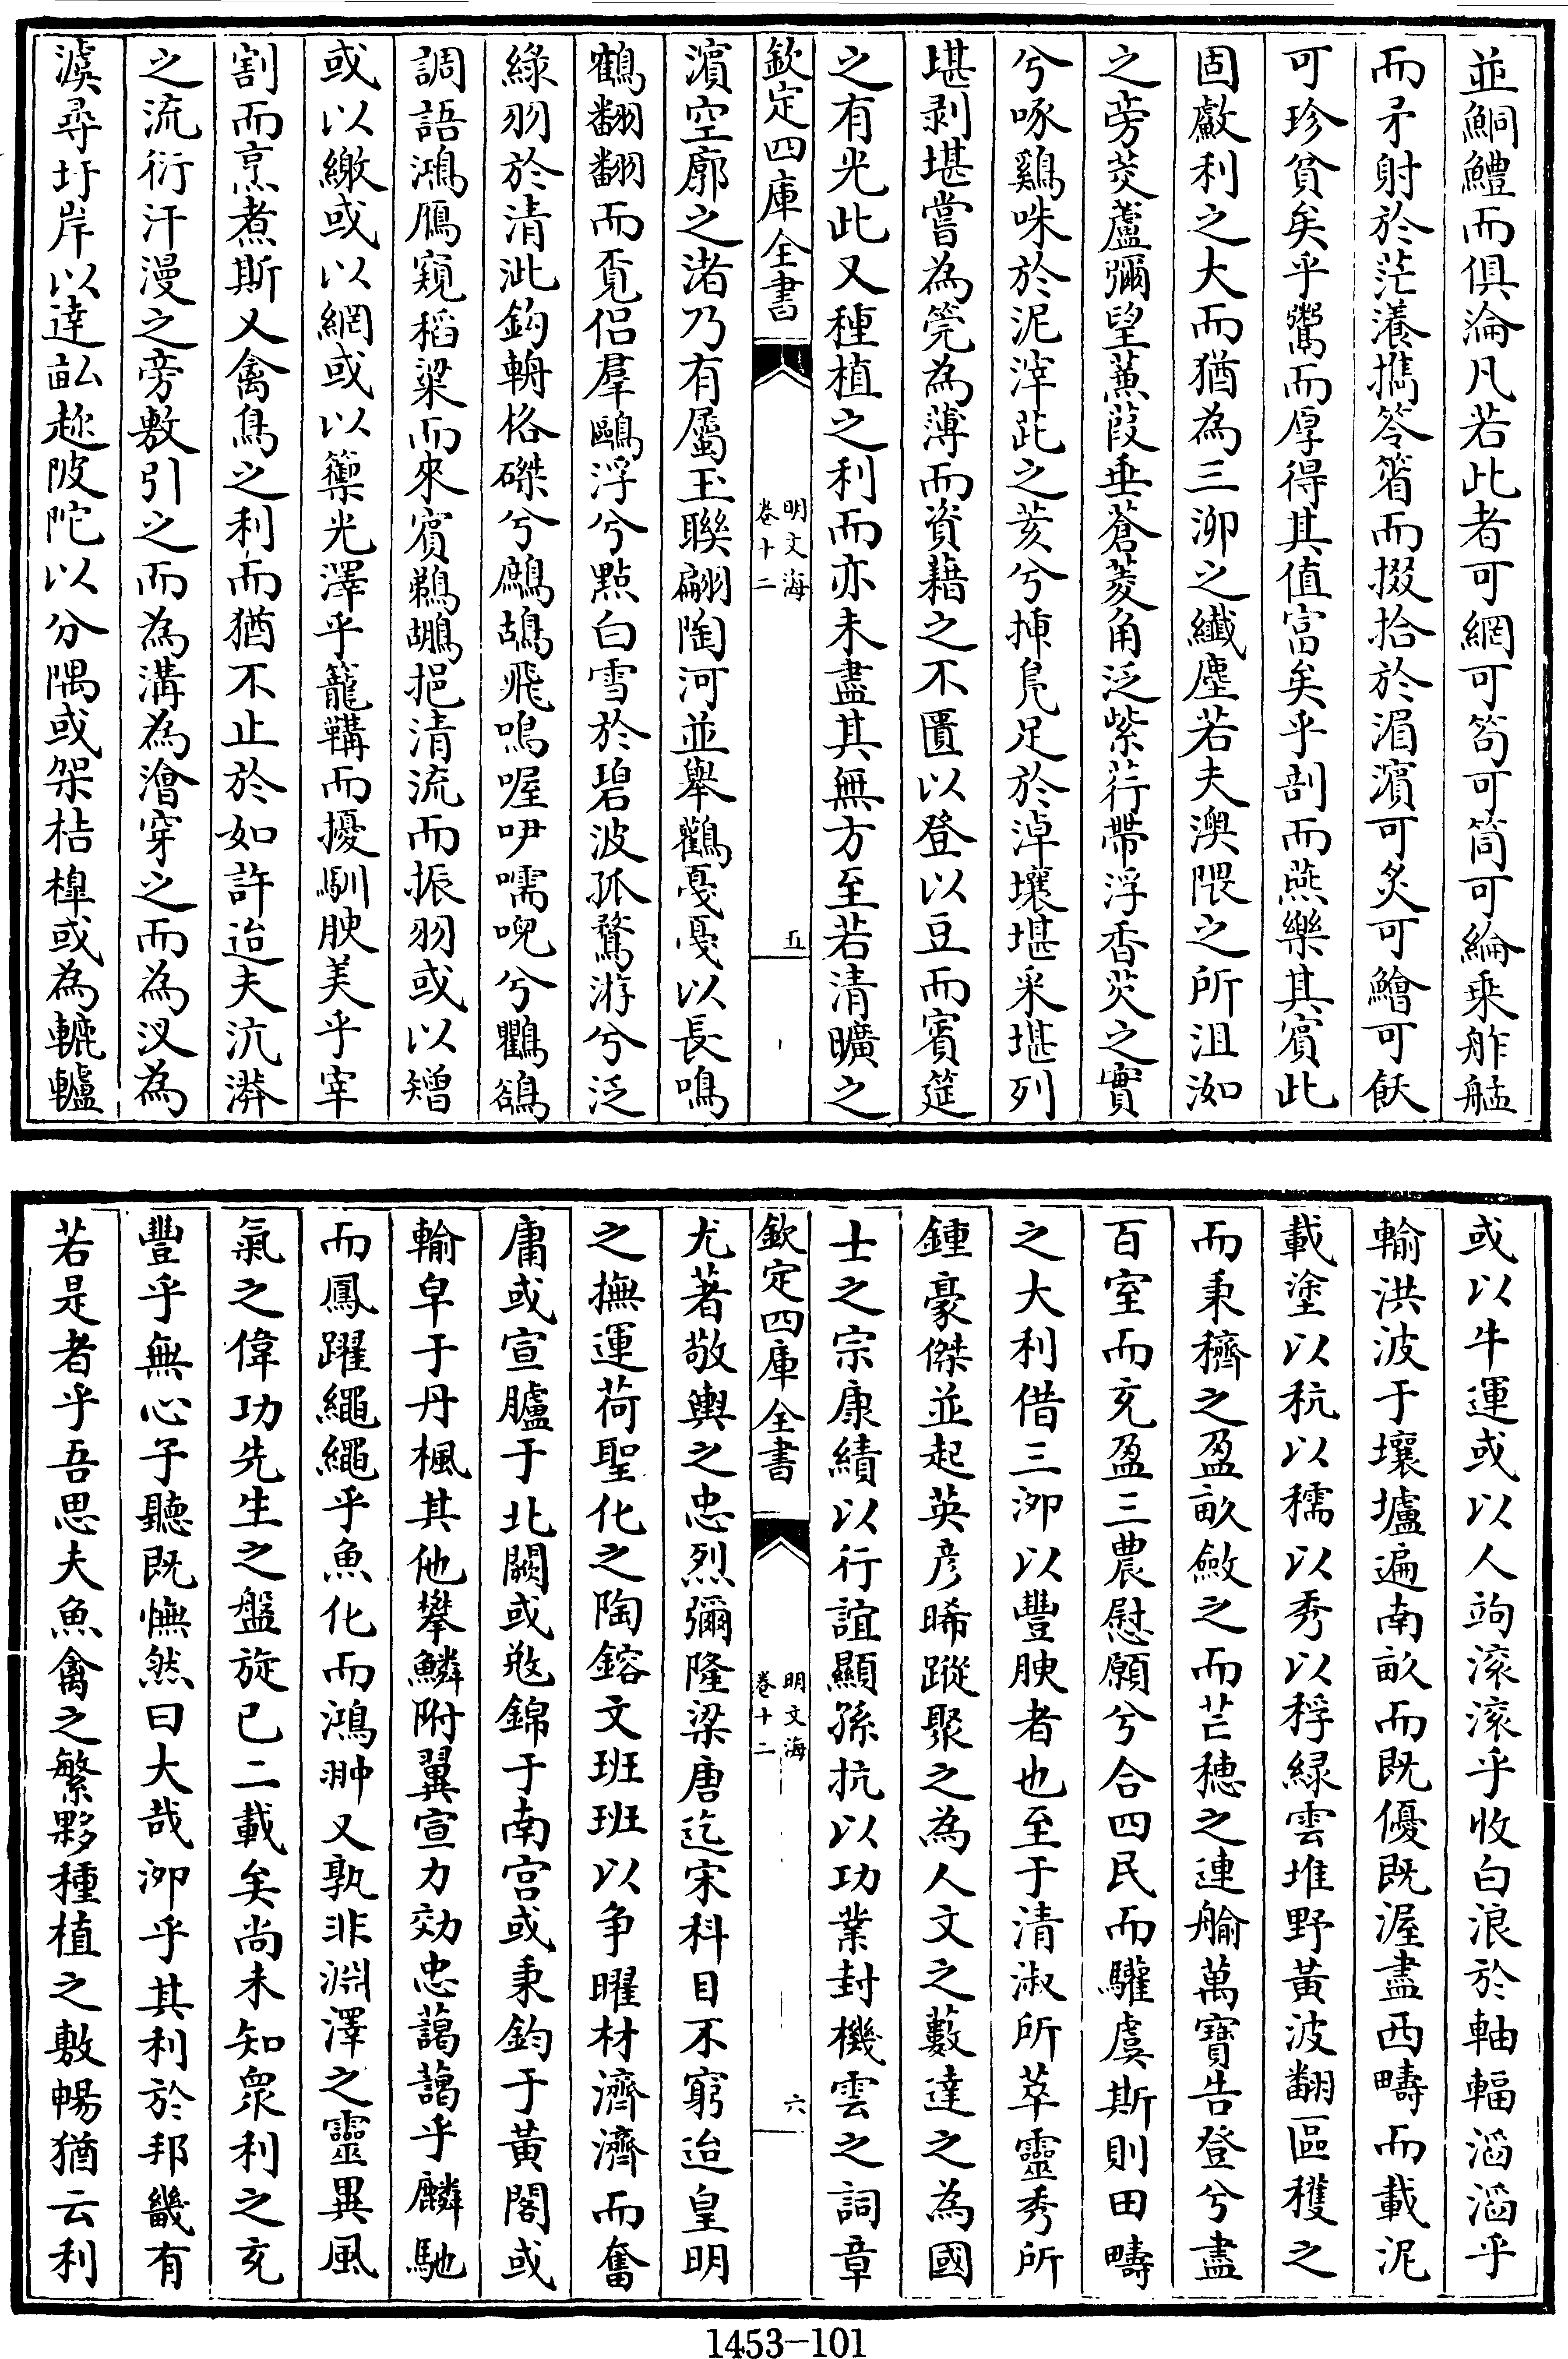 並鮦鱧而俱淪凡若此者可網可笱可筒可綸乗舴艋
而矛射於茫瀁擕笭箵而掇拾於湄濱可炙可鱠可飫
可珍貧矣乎鬻而厚得其值富矣乎剖而燕樂其賓此
固𤅊利之大而猶為三泖之纖塵若夫澳隈之所沮洳
之旁茭蘆彌望蒹葭垂蒼菱角泛紫荇帶浮香芡之實
兮啄鷄咮於泥滓茈之荄兮揷鳧足於淖壤堪采堪列
堪剥堪嘗為筦為薄而資藉之不匱以登以豆而賓筵
之有光此又種植之利而亦未盡其無方至若清曠之
欽定四庫全書
明文海
卷十二
五
濵空廓之渚乃有屬玉聯翩陶河並舉鸛戛戛以長鳴
鶴翻翻而覔侣羣鷗浮兮點白雪於碧波孤鶩游兮泛
綠羽於清泚鈎輈格磔兮鷓鴣飛鳴喔咿嚅唲兮鸜鵒
調語鴻鴈窺稻粱而來賓鵜鶘挹清流而振羽或以矰
或以繳或以網或以籞光澤乎籠鞲而擾馴腴美乎宰
割而烹煮斯又禽鳥之利而猶不止於如許迨夫沆漭
之流衍汗漫之旁敷引之而為溝為澮穿之而為汊為
濵尋圩岸以達畆趂陂陀以分隅或架桔橰或為轆轤
或以牛運或以人跔滚滚乎收白浪於軸輻滔滔乎
輸洪波于壤壚遍南畝而既優既渥盡西疇而載泥
載塗以秔以穤以秀以稃綠雲堆野黃波翻區穫之
而秉穧之盈畝斂之而芒穂之連艙萬寶告登兮盡
百室而充盈三農慰願兮合四民而驩虞斯則田疇
之大利借三泖以豐腴者也至于清淑所萃靈秀所
鍾豪傑並起英彦晞蹤聚之為人文之藪達之為國
士之宗康績以行誼顯孫抗以功業封機雲之詞章
欽定四庫全書
明文海
卷十二
六
尤著敬輿之忠烈彌隆梁唐迄宋科目不窮迨皇明
之撫運荷聖化之陶鎔文班班以争曜材濟濟而奮
庸或宣臚于北闕或敚錦于南宫或秉鈞于黃閣或
輸皁于丹楓其他攀鱗附翼宣力効忠藹藹乎麟馳
而鳳躍繩繩乎魚化而鴻翀又孰非淵澤之靈異風
氣之偉功先生之盤旋已二載矣尚未知衆利之充
豐乎無心子聽既憮然曰大哉泖乎其利於邦畿有
若是者乎吾思夫魚禽之繁夥種植之敷暢猶云利
1453-101